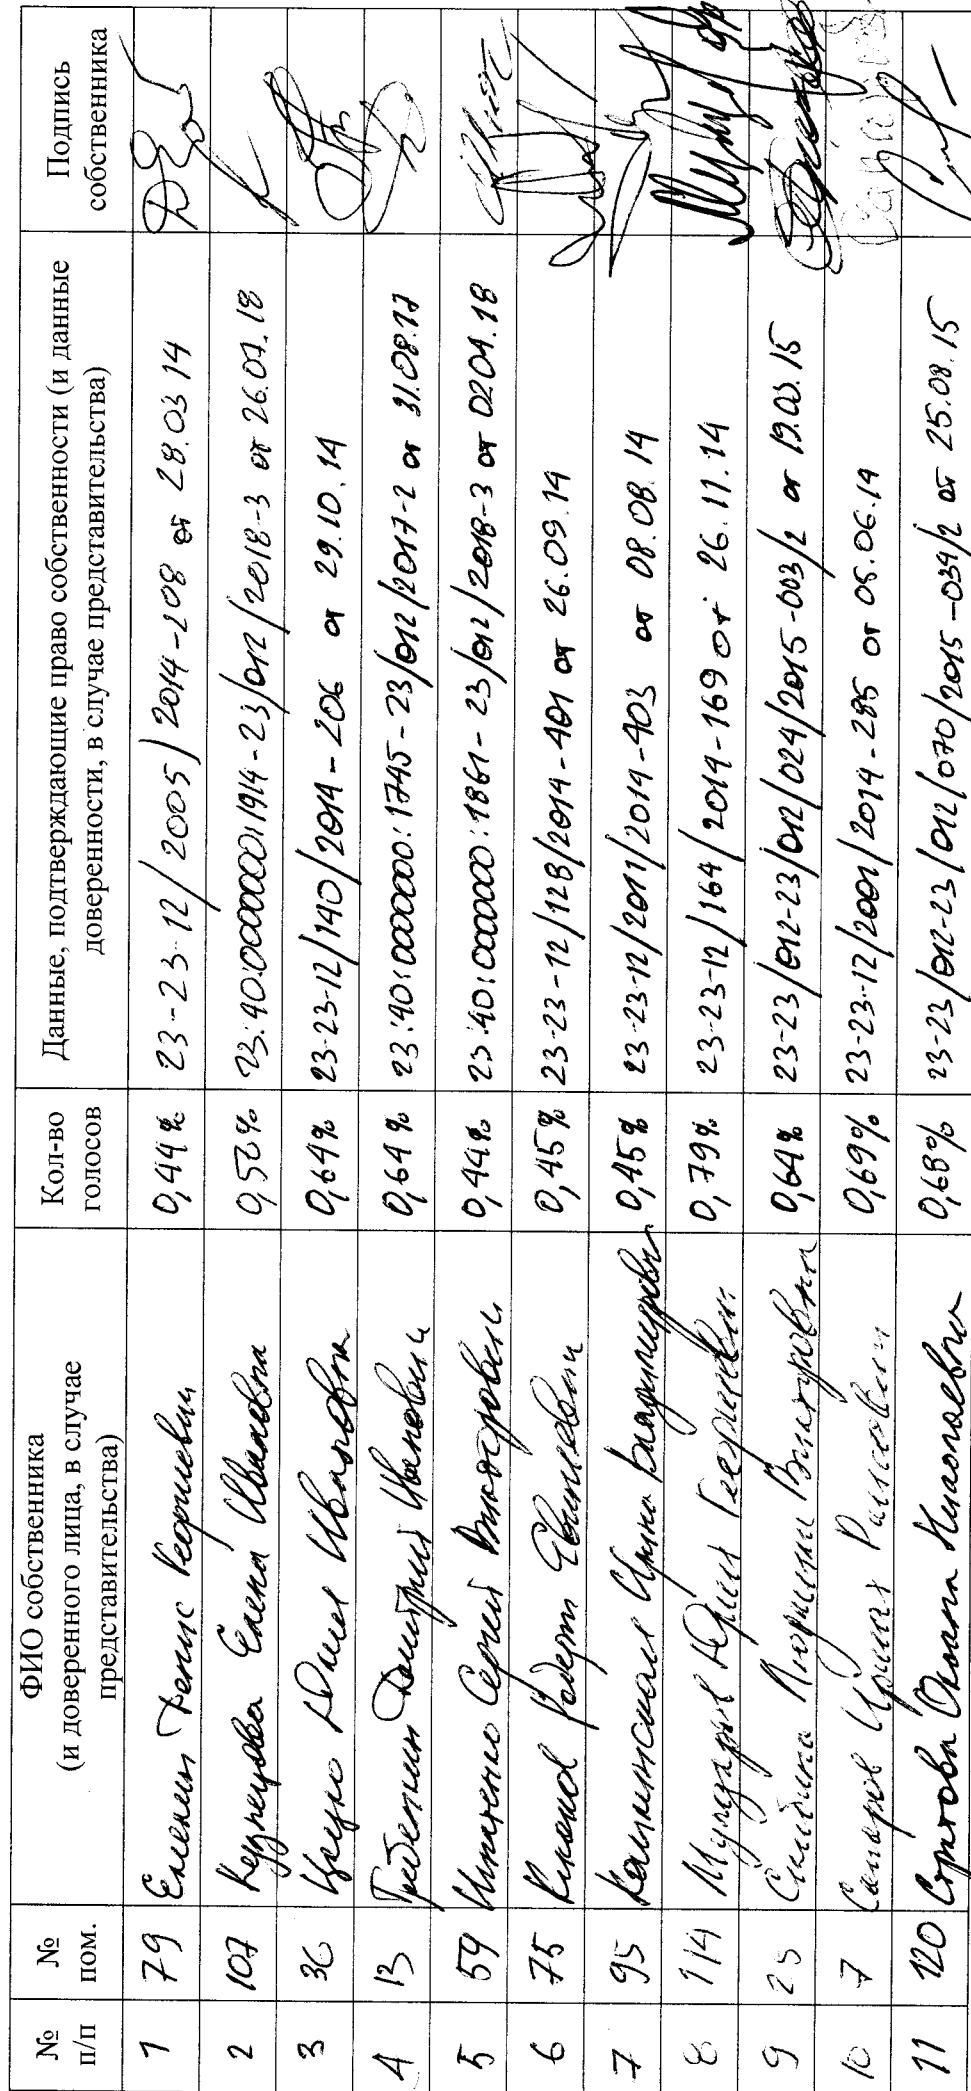 № п/п
№ пом.
ФИО собственника
(и доверенного лица, в случае
представительства)
Кол-во
голосов
Данные, подтверждающие право собственности (и данные
доверенности, в случае представительства)
Подпись
собственника
1 79 Еленин Денис Георгиевич 0,44% 23-23-12/2005/2014-208 от 28.03 14
2 107 Кузнецова Елена Ивановна 0,50% 23:40:0000000:1914-23/012/2018-3 от 26.07.18
3 36 Юлия Ивановна 0,64% 23-23-12/140/2014-206 от 29.10.14
4 13 Гребенкин Дмитрий Иванович 0,64% 23:40:0000000:1745-23/012/2017-2 от 31.08.17
5 59 Сергей Викторович 0,44% 23:40:0000000:1861-23/012/2018-3 от 02.04.18
6 75 Роберт 0,45% 23-23-12/128/2014-401 от 26.09.14
7 95 Ирина Владимировна 0,45% 23-23-12/2011/2014-403 от 08.08.14
8 114 Юрий Георгиевич 0,79% 23-23-12/164/2014-169 от 26.11.14
9 25 Людмила Викторовна 0,64% 23-23/012-23/012/024/2015-003/2 от 19.03.15
10 7 0,69% 23-23-12/2001/2014-285 от 05.06.14
11 120 Оксана Николаевна 0,68% 23-23/012-23/012/070/2015-034/2 от 25.08.15